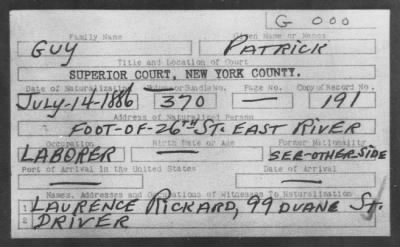 G 000
Family Name Given Name or Names
GUY PATRICK
Title and Location of Court
SUPERIOR COURT, NEW YORK COUNTY.
Date of Naturalization Volume or Bundle No. Page No. Copy of Record No.
JULY-14-1886 370 — 191
Address of Naturalized Person
FOOT-OF-26TH ST. EAST RIVER
Occupation Birth Date or Age Former Nationality
LABORER — SEE-OTHER SIDE
Port of Arrival in the United States Date of Arrival
— —
Names, Addresses and Occupations of Witnesses To Naturalization
1 LAURENCE RICKARD, 99 DUANE ST.
2 DRIVER